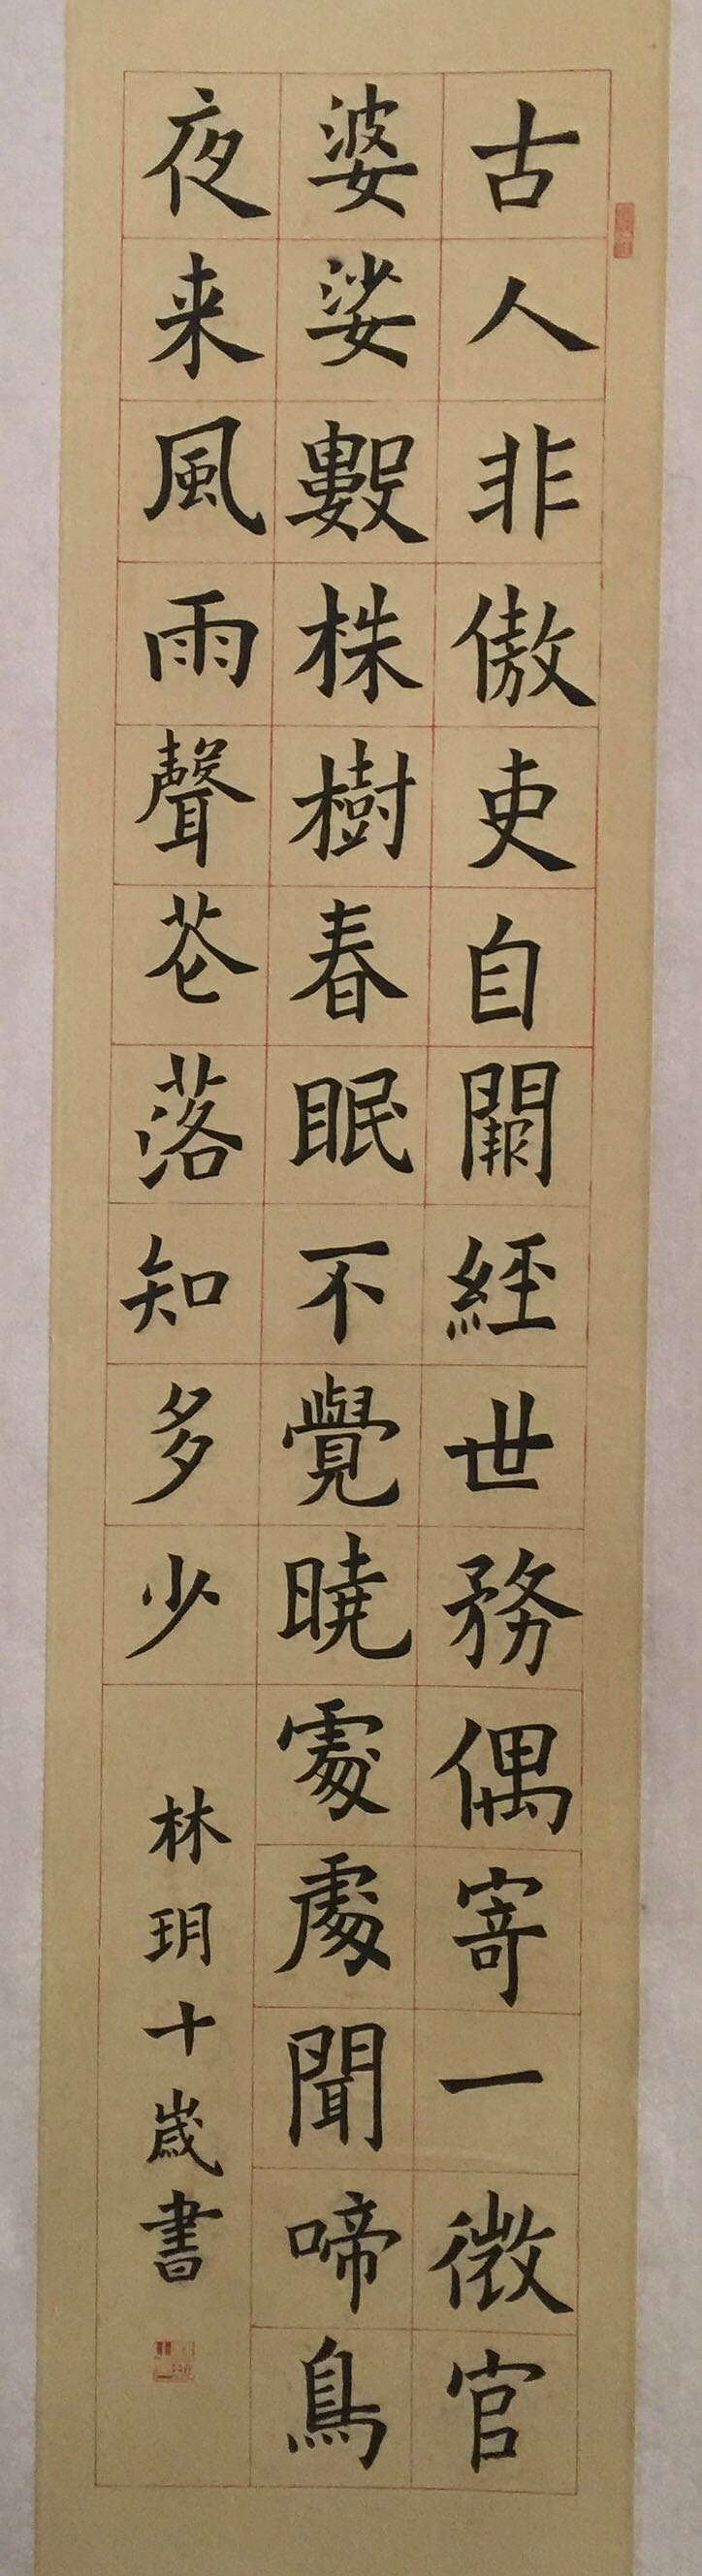 古人非傲吏自闕經世務偶寄一微官
婆娑數株樹春眠不覺曉處處聞啼鳥
夜来風雨聲花落知多少
林玥十歲書